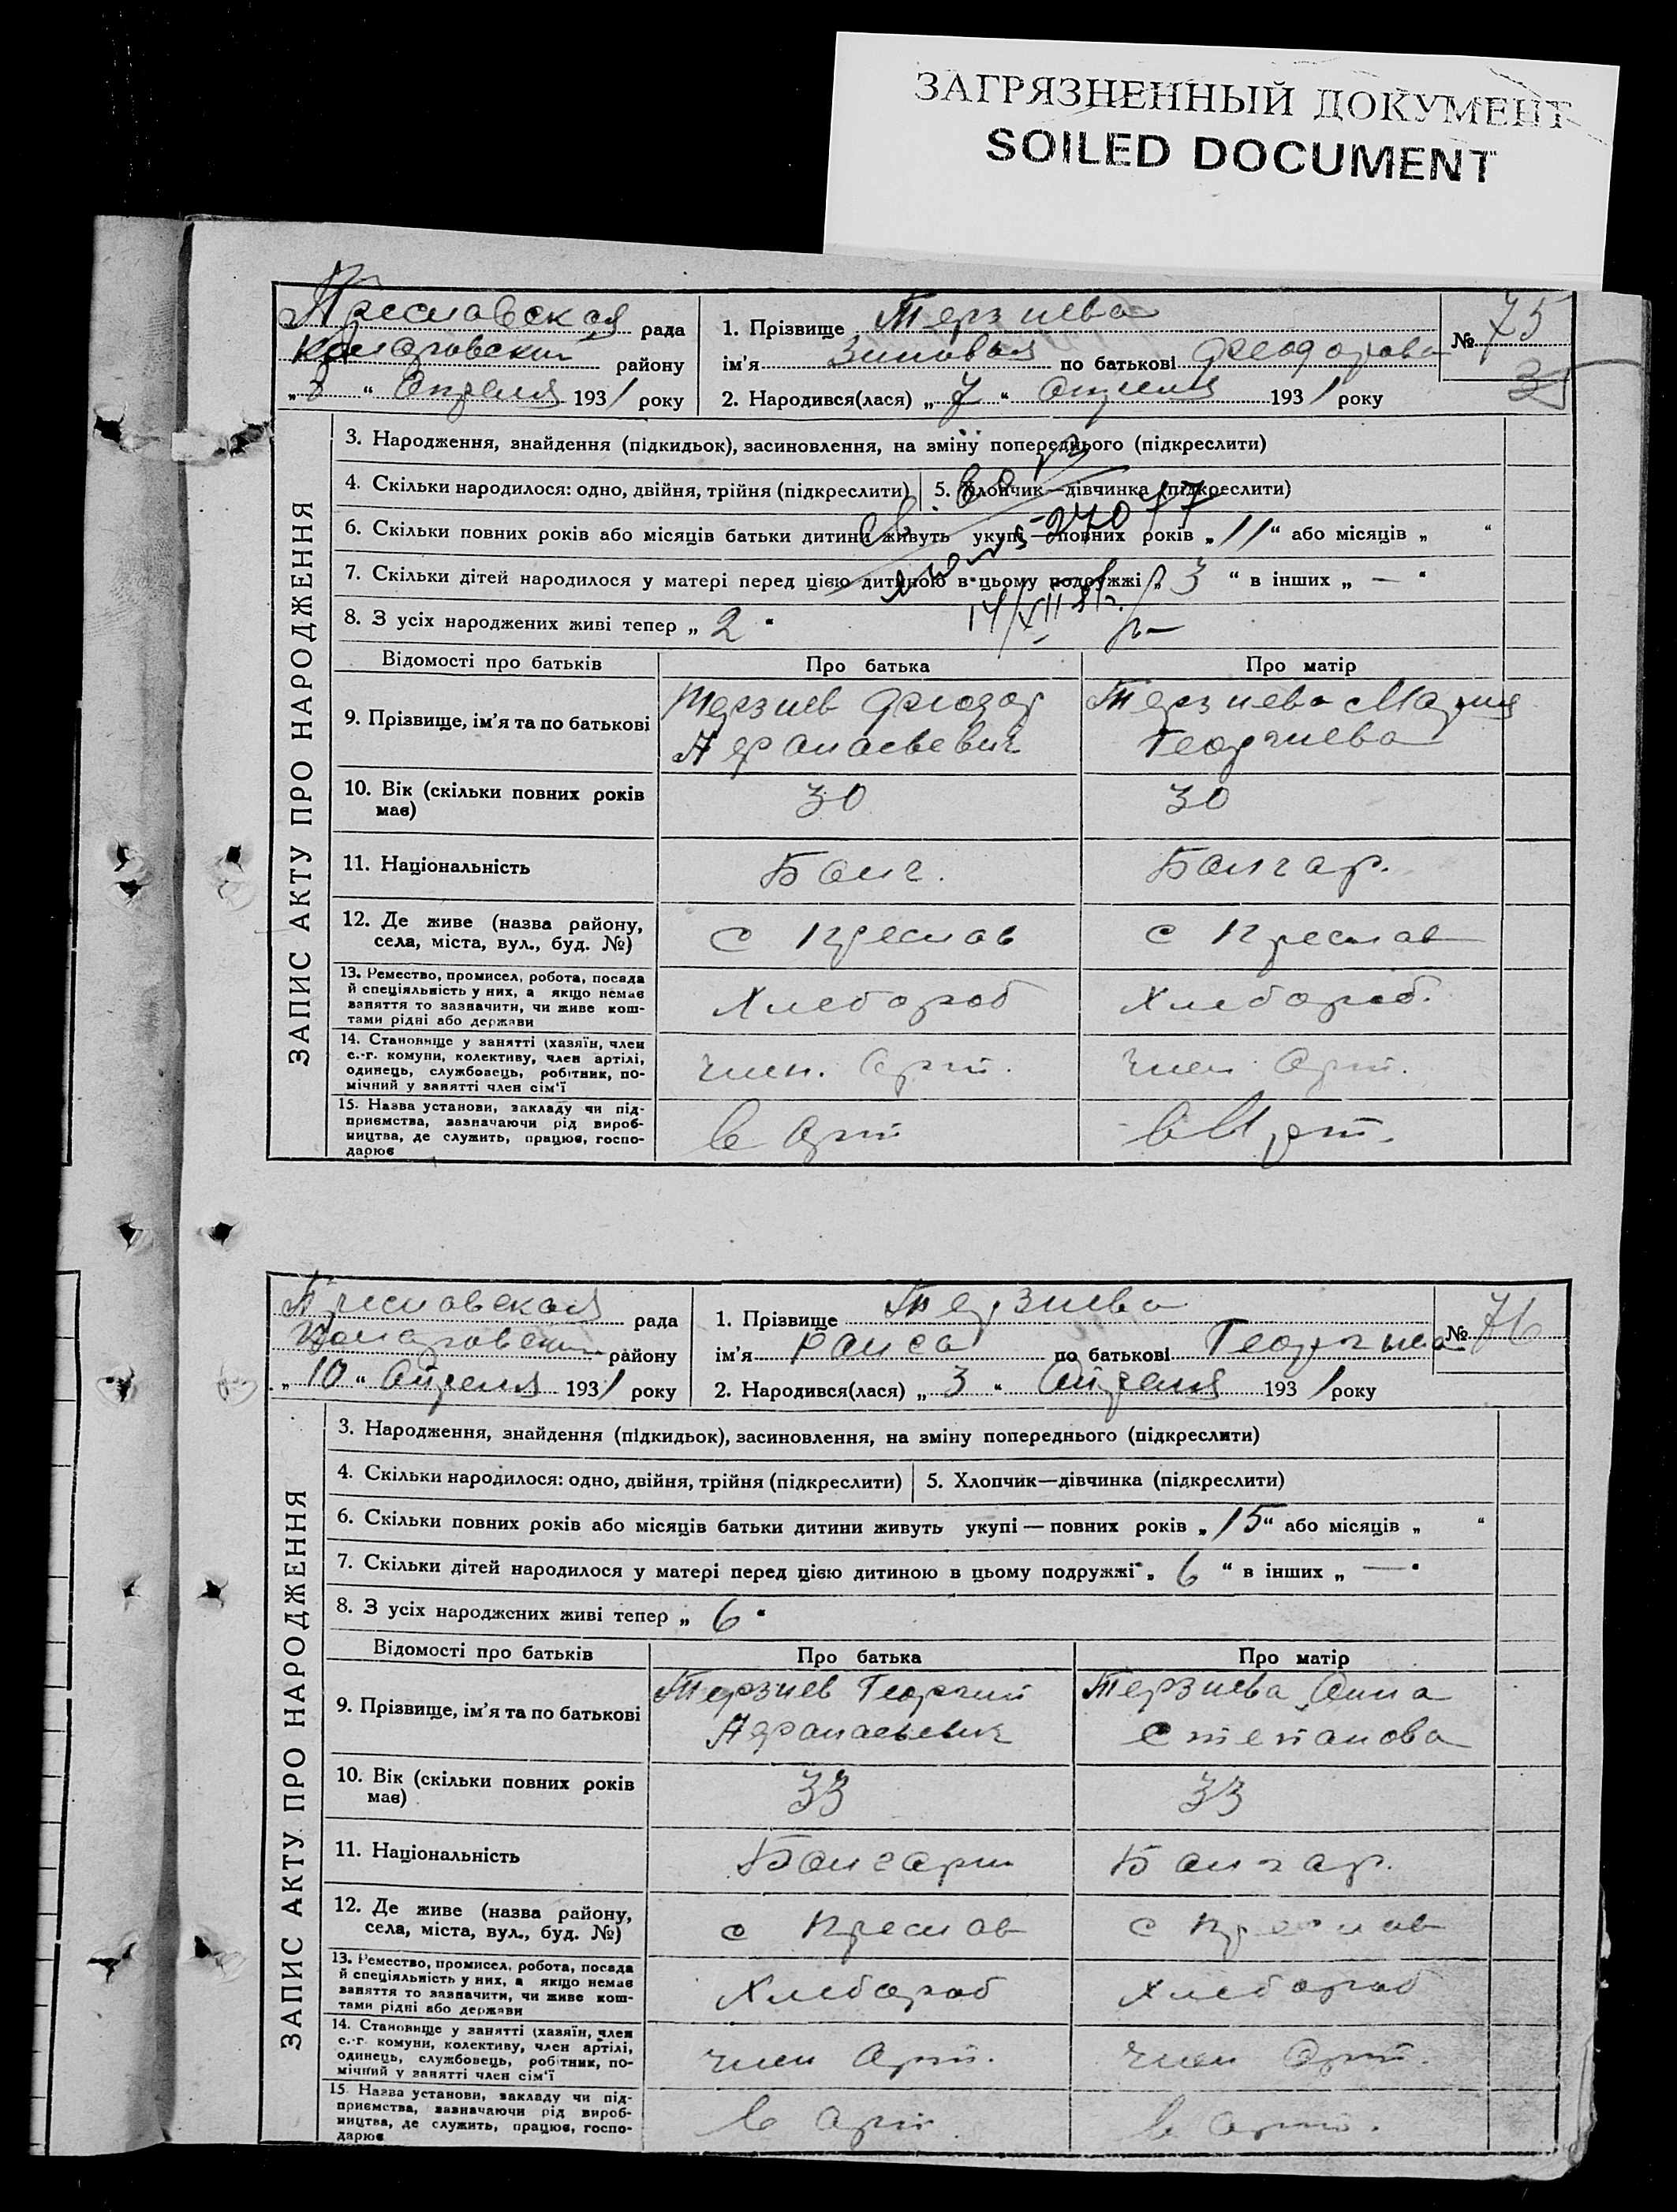 ЗАГРЯЗНЕННЫЙ ДОКУМЕНТ
SOILED DOCUMENT
ЗАПИС АКТУ ПРО НАРОДЖЕННЯ
Преславская рада
району
Апреля 1931 року
1. Прізвище Терзиева
ім'я Зиновия по батькові Феодорова
2. Народився(лася) „ 7 “ Апреля 1931 року
№ 75
3. Народження, знайдення (підкидьок), засиновлення, на зміну попереднього (підкреслити)
4. Скільки народилося: одно, двійня, трійня (підкреслити)
5. Хлопчик—дівчинка (підкреслити)
6. Скільки повних років або місяців батьки дитини живуть укупі — повних років „ 11 “ або місяців „ “
7. Скільки дітей народилося у матері перед цією дитиною в цьому подружжі „ 3 “ в інших „ — “
8. З усіх народжених живі тепер „ 2 “
Відомості про батьків
Про батька
Про матір
9. Прізвище, ім'я та по батькові
Терзиев Феодор
Афанасьевич
Терзиева Мария
Георгиева
10. Вік (скільки повних років
має)
30
30
11. Національність
Болг.
Болгар.
12. Де живе (назва району,
села, міста, вул., буд. №)
с Преслав
с Преслав
13. Ремество, промисел, робота, посада
й спеціяльність у них, а якщо немає
заняття то зазначити, чи живе кош-
тами рідні або держави
Хлебороб
Хлебороб.
14. Становище у занятті (хазяїн, член
с.-г. комуни, колективу, член артілі,
одинець, службовець, робітник, по-
мічний у занятті член сім'ї
член. Арт.
член Арт.
15. Назва установи, закладу чи під-
приємства, зазначаючи рід вироб-
ництва, де служить, працює, госпо-
дарює
в Арт
в Арт.
ЗАПИС АКТУ ПРО НАРОДЖЕННЯ
Преславская рада
району
„ 10 “ Апреля 1931 року
1. Прізвище Терзиева
ім'я Раиса по батькові Георгиева
2. Народився(лася) „ 3 “ Апреля 1931 року
№ 76
3. Народження, знайдення (підкидьок), засиновлення, на зміну попереднього (підкреслити)
4. Скільки народилося: одно, двійня, трійня (підкреслити)
5. Хлопчик—дівчинка (підкреслити)
6. Скільки повних років або місяців батьки дитини живуть укупі — повних років „ 15 “ або місяців „ “
7. Скільки дітей народилося у матері перед цією дитиною в цьому подружжі „ 6 “ в інших „ — “
8. З усіх народжених живі тепер „ 6 “
Відомості про батьків
Про батька
Про матір
9. Прізвище, ім'я та по батькові
Терзиев Георгий
Афанасьевич
Терзиева Анна
Степанова
10. Вік (скільки повних років
має)
33
33
11. Національність
Болгарин
Болгар.
12. Де живе (назва району,
села, міста, вул., буд. №)
с Преслав
с Преслав
13. Ремество, промисел, робота, посада
й спеціяльність у них, а якщо немає
заняття то зазначити, чи живе кош-
тами рідні або держави
Хлебороб
Хлебороб
14. Становище у занятті (хазяїн, член
с.-г. комуни, колективу, член артілі,
одинець, службовець, робітник, по-
мічний у занятті член сім'ї
член Арт.
член Арт.
15. Назва установи, закладу чи під-
приємства, зазначаючи рід вироб-
ництва, де служить, працює, госпо-
дарює
в Арт.
в Арт.